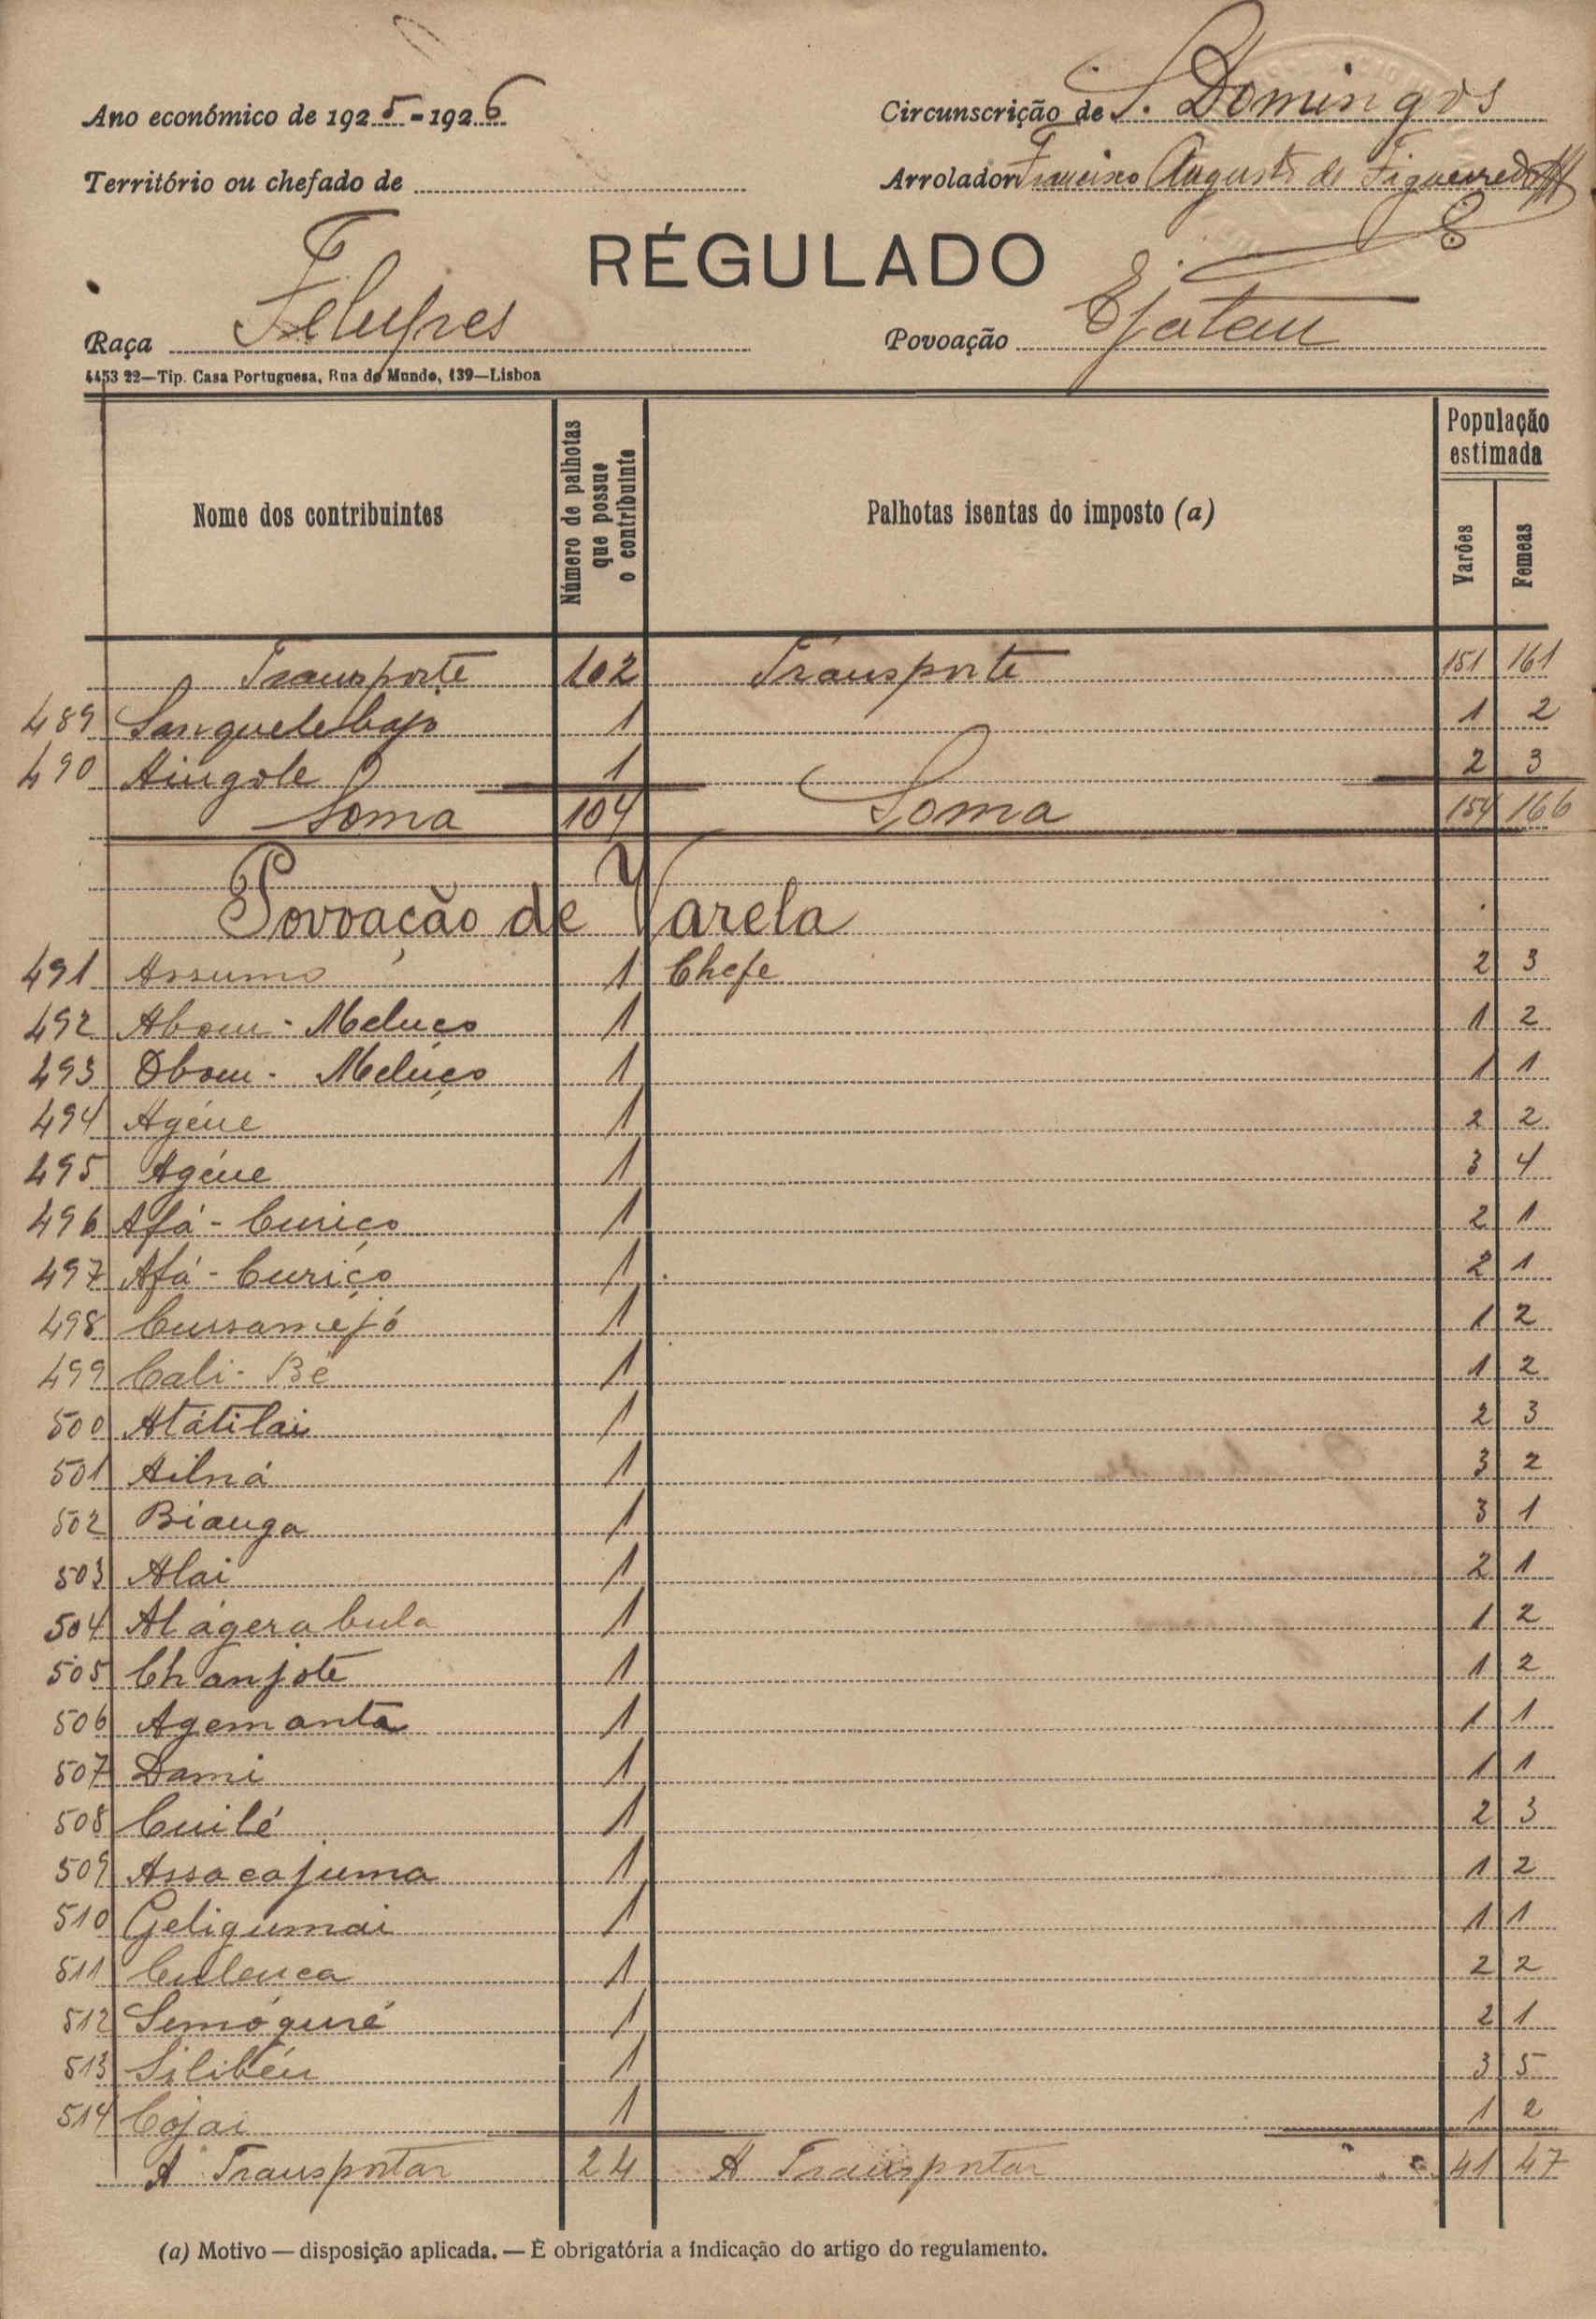 Ano económico de 1925-1926
Circunscrição de S. Domingos
Território ou chefado de
Arrolador Francisco Augusto de Figueiredo
RÉGULADO
Raça Felupes
Povoação Ejatem
4453 22—Tip. Casa Portuguesa, Rua do Mundo, 139—Lisboa
Nome dos contribuintes
Número de palhotas que possue o contribuinte
Palhotas isentas do imposto (a)
População estimada
Varões
Femeas
Transporte 102 Transporte 151 161
489 Sanquelebajo 1 1 2
490 Aingole 1 2 3
Soma 104 Soma 154 166
Povoação de Varela
491 Assumo 1 Chefe 2 3
492 Abom - Meluco 1 1 2
493 Obom - Melúço 1 1 1
494 Agéne 1 2 2
495 Agéne 1 3 4
496 Afá - Curiço 1 2 1
497 Afá - Curiço 1 2 1
498 Cussaméjó 1 1 2
499 Cali - Bé 1 1 2
500 Atátilai 1 2 3
501 Ailná 1 3 2
502 Bianga 1 3 1
503 Alai 1 2 1
504 Alágerabula 1 1 2
505 Chanjote 1 1 2
506 Agemanta 1 1 1
507 Dami 1 1 1
508 Cuilé 1 2 3
509 Assacajuma 1 1 2
510 Geligumai 1 1 1
511 Culenca 1 2 2
512 Semóguré 1 2 1
513 Silibéu 1 3 5
514 Cojai 1 1 2
A Transportar 24 A Transportar 41 47
(a) Motivo — disposição aplicada. — É obrigatória a indicação do artigo do regulamento.